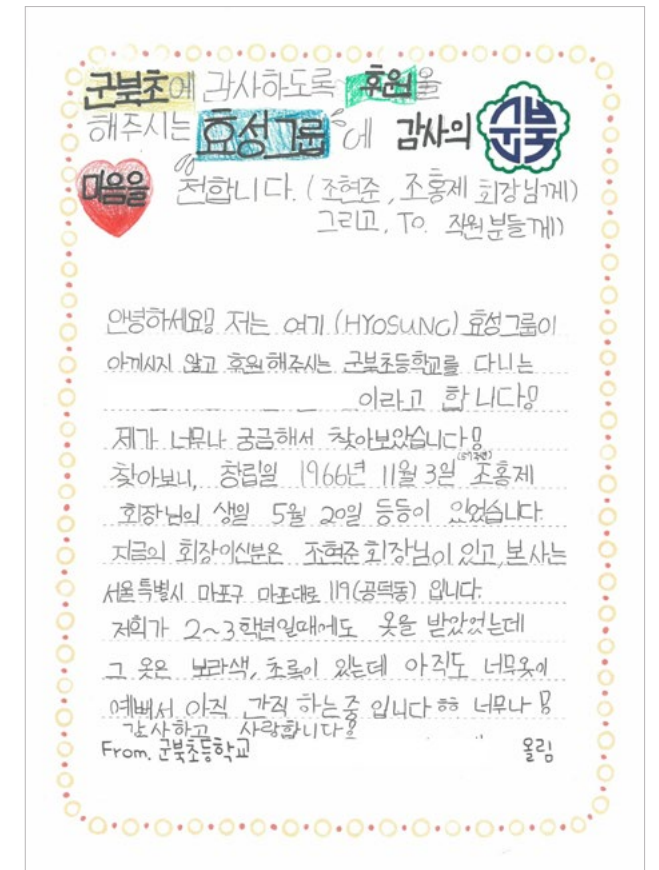 군북초에 감사하도록 후원을
해주시는 효성그룹에 감사의 군북
마음을 전합니다. (조현준, 조홍제 회장님께)
그리고, To. 직원분들께))
안녕하세요!! 저는 여기 (HYOSUNG) 효성그룹이
아끼시지 않고 후원해주시는 군북초등학교를 다니는
이라고 합니다!
제가 너무나 궁금해서 찾아보았습니다!
찾아보니, 창립일 1966년 11월 3일 (57주년) 조홍제
회장님의 생일 5월 20일 등등이 있었습니다.
지금의 회장이신분은 조현준 회장님이 있고, 본사는
서울특별시 마포구 마포대로 119(공덕동) 입니다.
저희가 2~3학년일때에도 옷을 받았었는데
그 옷은 보라색, 초록이 있는데 아직도 너무옷이
예뻐서 아직 간직 하는중 입니다 ㅎㅎ 너무나 !
감사하고 사랑합니다!
From. 군북초등학교 올림